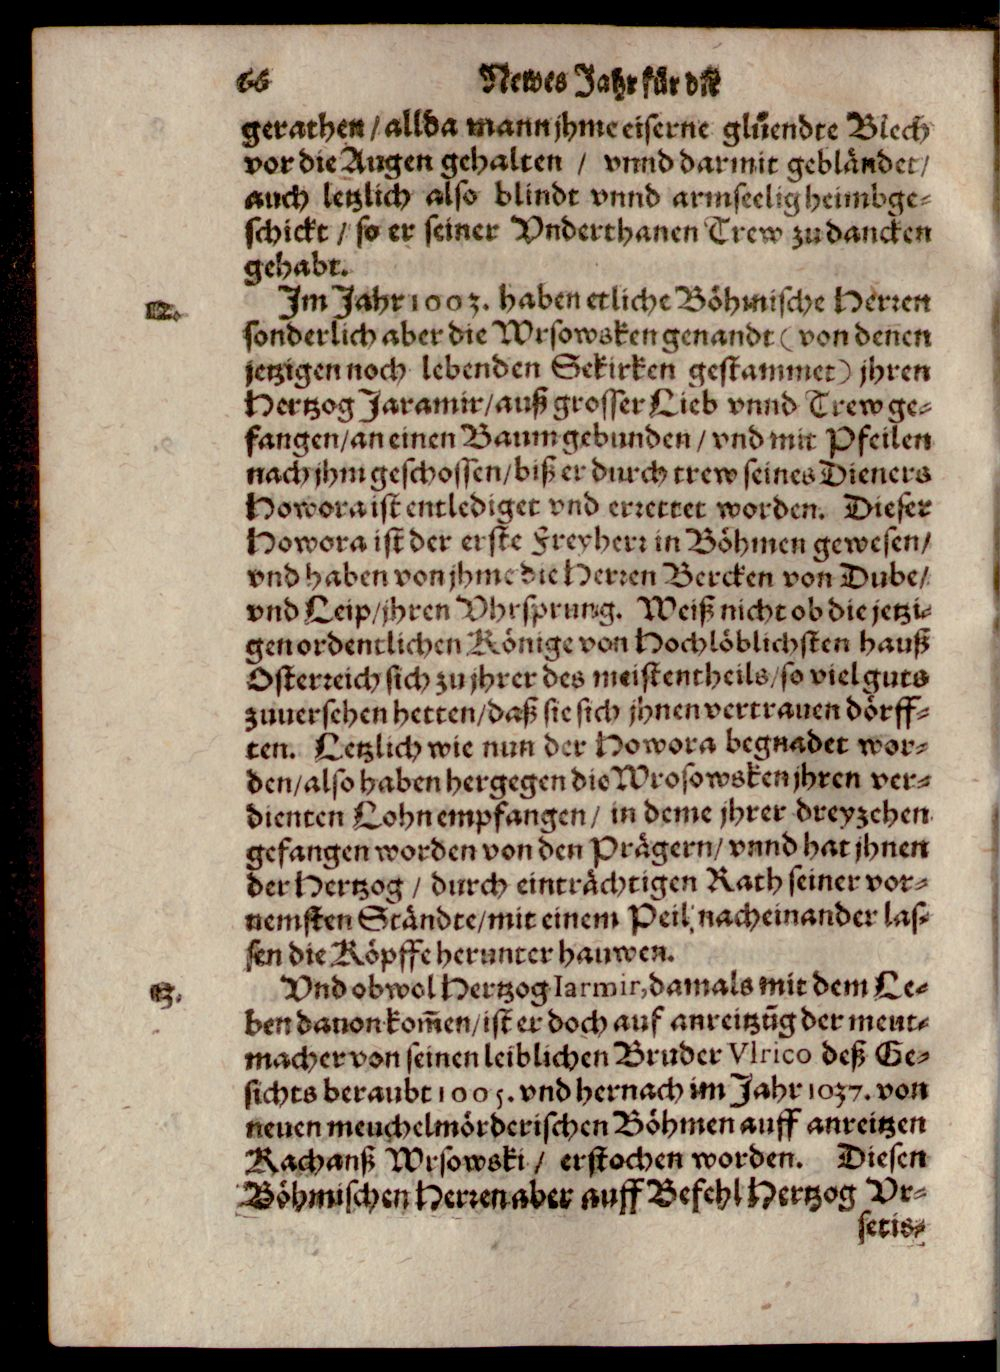 66 Newes Jahr für die
gerathen / allda mann jhme eiserne glüendte Blech
vor die Augen gehalten / vnnd darmit gebländet /
auch letzlich also blindt vnnd armseelig heimbge-
schickt / so er seiner Vnderthanen Trew zu dancken
gehabt.
12. Im Jahr 1003. haben etliche Böhmische Herren
sonderlich aber die Wrsowsken genandt (von denen
jetzigen noch lebenden Sekirken gestammet) jhren
Hertzog Jaramir / auß grosser Lieb vnnd Trew ge-
fangen / an einen Baum gebunden / vnd mit Pfeilen
nach jhm geschossen / biß er durch trew seines Dieners
Howora ist entlediget vnd errettet worden. Dieser
Howora ist der erste Freyherr in Böhmen gewesen /
vnd haben von jhme die Herren Bercken von Dube /
vnd Leip / jhren Vhrsprung. Weiß nicht ob die jetzi-
gen ordentlichen Könige von Hochlöblichsten hauß
Osterreich sich zu jhrer des meistentheils / so viel guts
zuuersehen hetten / daß sie sich jhnen vertrauen dörff-
ten. Letzlich wie nun der Howora begnadet wor-
den / also haben hergegen die Wrosowsken jhren ver-
dienten Lohn empfangen / in deme jhrer dreyzehen
gefangen worden von den Prägern / vnnd hat jhnen
der Hertzog / durch einträchtigen Rath seiner vor-
nemsten Ständte / mit einem Peil / nacheinander las-
sen die Köpffe herunter hauwen.
13. Vnd obwol Hertzog Iarmir, damals mit dem Le-
ben dauon kom̄en / ist er doch auf anreitzūg der meut-
macher von seinen leiblichen Bruder Vlrico deß Ge-
sichts beraubt 1005. vnd hernach im Jahr 1037. von
neuen meuchelmörderischen Böhmen auff anreitzen
Rachanß Wrsowski / erstochen worden. Diesen
Böhmischen Herren aber auff Befehl Hertzog Vr-
setis-